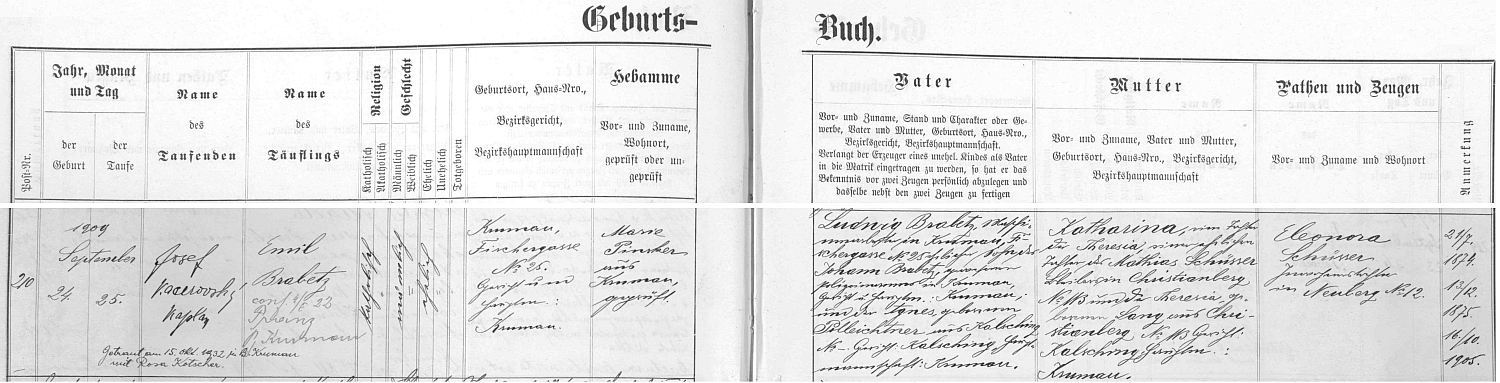 Geburts-
Buch.
Post-Nr.
Jahr, Monat
und Tag
der
Geburt
der
Taufe
Name
des
Taufenden
Name
des
Täuflings
Religion
Katholisch
Akatholisch
Geschlecht
Männlich
Weiblich
Ehelich
Unehelich
Todtgeboren
Geburtsort, Haus-Nro.,
Bezirksgericht,
Bezirkshauptmannschaft
Hebamme
Vor- und Zuname,
Wohnort,
geprüft oder un-
geprüft
Vater
Vor- und Zuname, Stand und Charakter oder Ge-
werbe, Vater und Mutter, Geburtsort, Haus-Nro.,
Bezirksgericht, Bezirkshauptmannschaft.
Verlangt der Erzeuger eines unehel. Kindes als Vater
in die Matrik eingetragen zu werden, so hat er das
Bekenntnis vor zwei Zeugen persönlich abzulegen und
dasselbe nebst den zwei Zeugen zu fertigen
Mutter
Vor- und Zuname, Vater und Mutter,
Geburtsort, Haus-Nro., Bezirksgericht,
Bezirkshauptmannschaft
Pathen und Zeugen
Vor- und Zuname und Wohnort
Anmerkung
210
1909
September
24. 25.
Josef
Kaplan
Emil
Brabetz
Krumau
Getraut am 15. Okt. 1932 in B. Krumau
mit Rosa Kotscher.
katholisch
männlich
ehelich
Krumau,
Fischergasse
No 25.
Gericht und
Krumau.
Marie
Pinsker
aus
Krumau,
geprüft.
Ludwig Brabetz,
in Krumau, Fi-
schergasse No 25, ehelicher Sohn des
Johann Brabetz, gewesenen
in Krumau,
Krumau,
und der Agnes, geborenen
Polleichtner aus Kalsching
No – Gericht: Kalsching,
mannschaft: Krumau.
Katharina,
der Theresia
Tochter des Mathias Schüsser
in Christianberg
No 113 und der Theresia, ge-
borenen Lang aus Chri-
stianberg No 113 Gericht:
Kalsching
Krumau.
Eleonora
Schüsser
in Neuberg No 12.
21/7.
1874.
13/12.
1875.
16/10.
1905.